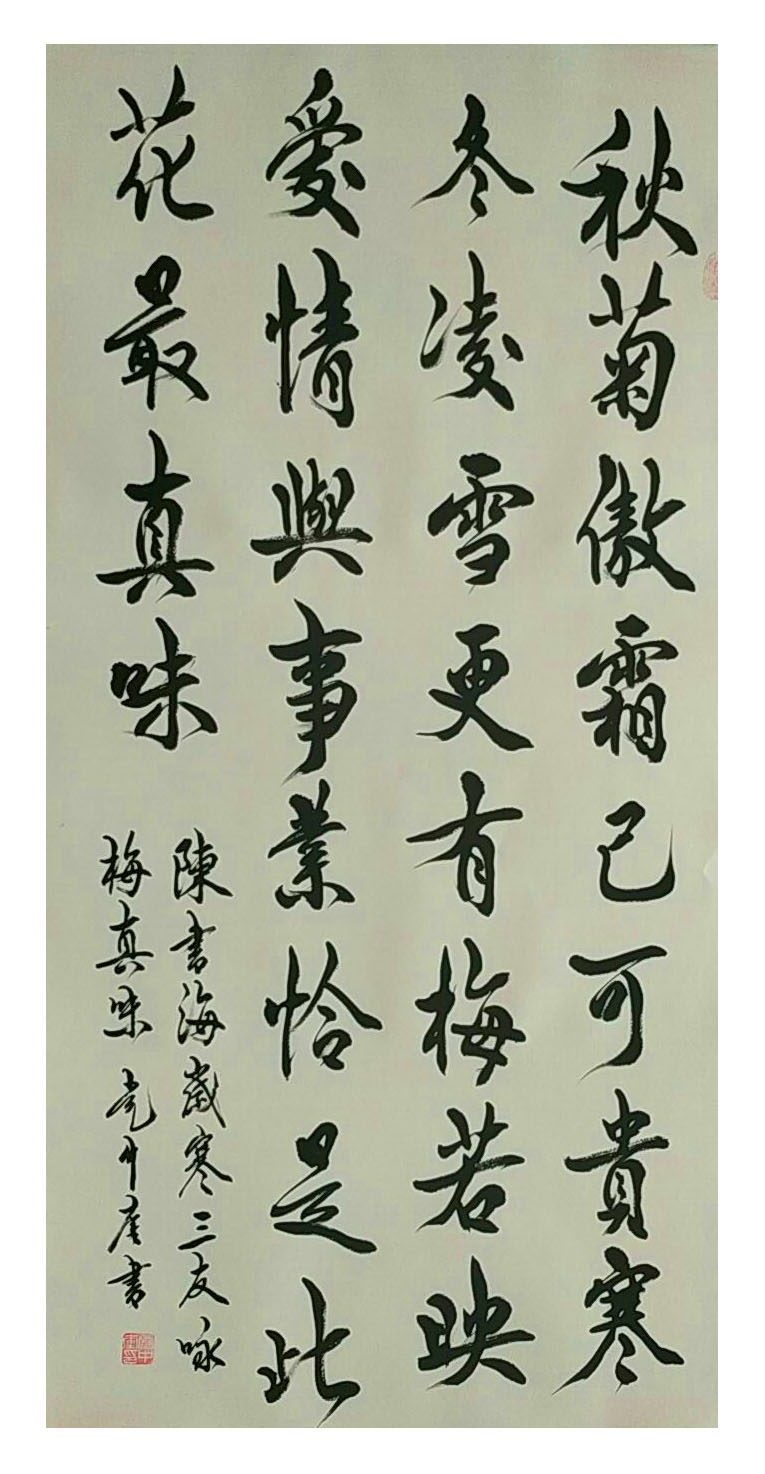 秋菊傲霜已可貴寒
冬凌雪更有梅若映
愛情與事業恰是此
花最真味
陳書海歲寒三友咏
梅真味 書